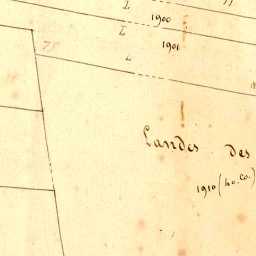 L
1900
L
1901
75
L
Landes des
1910 (40.Co.)